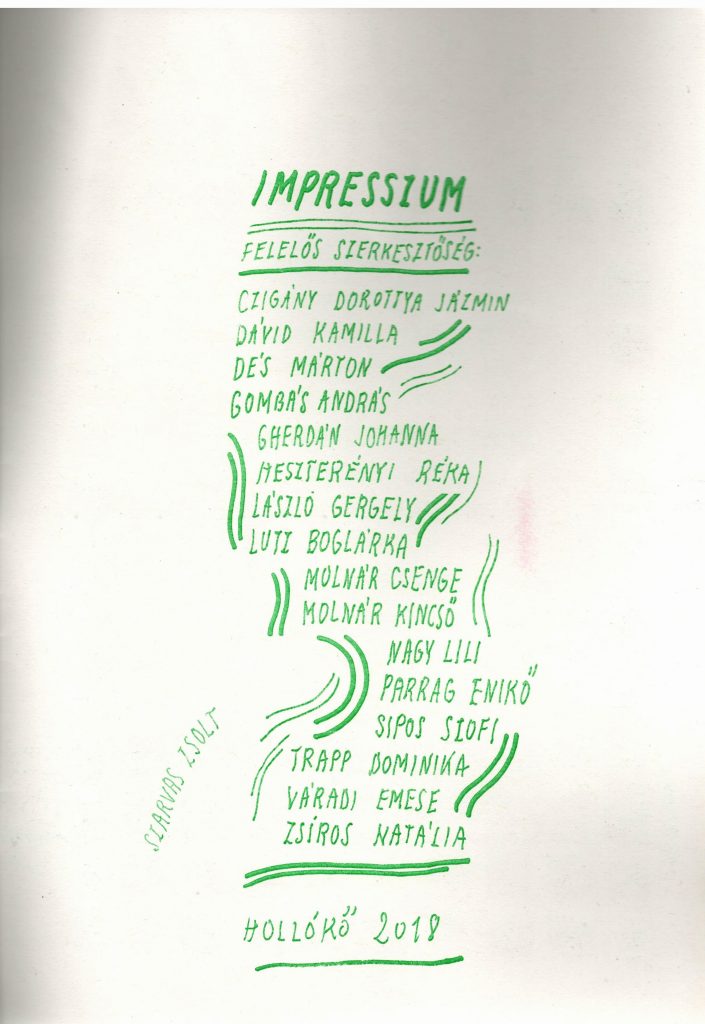 IMPRESSZUM
FELELŐS SZERKESZTŐSÉG:
CZIGÁNY DOROTTYA JÁZMIN
DÁVID KAMILLA
DÉS MÁRTON
GOMBÁS ANDRÁS
GHERDÁN JOHANNA
HESZTERÉNYI RÉKA
LÁSZLÓ GERGELY
LUTZ BOGLÁRKA
MOLNÁR CSENGE
MOLNÁR KINCSŐ
NAGY LILI
PARRAG ENIKŐ
SIPOS ZSOFI
TRAPP DOMINIKA
VÁRADI EMESE
ZSÍROS NATÁLIA
SZARVAS ZSOLT
HOLLÓKŐ 2018